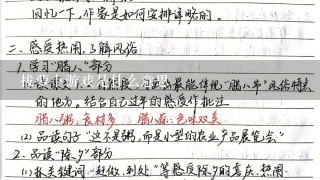 回忆一下,作家是如何安排详略的。
二、感受热闹,了解风俗
1.学习“腊八”部分
最能体现“腊八节”风俗特点
的地方。结合自己过年的感受作批注
腊八粥:食材多 腊八蒜:色味双美
(2)品读句子“这不是粥,而是小型的农业产品展览会”
2.品读“除夕”部分
(1)抓关键词:赶做、到处”等感受除夕的喜庆、热闹